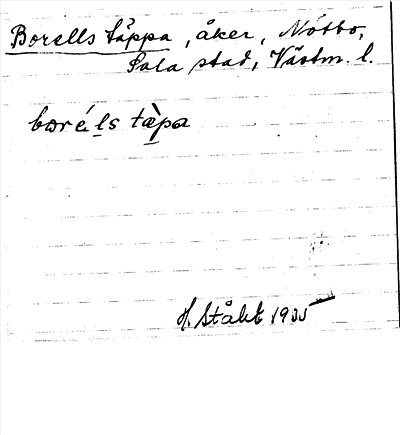 Borells täppa, åker, Mótbo,
Sala stad, Västm. l.
bɷré́ls tæ̀pa
H. Ståhl 1935